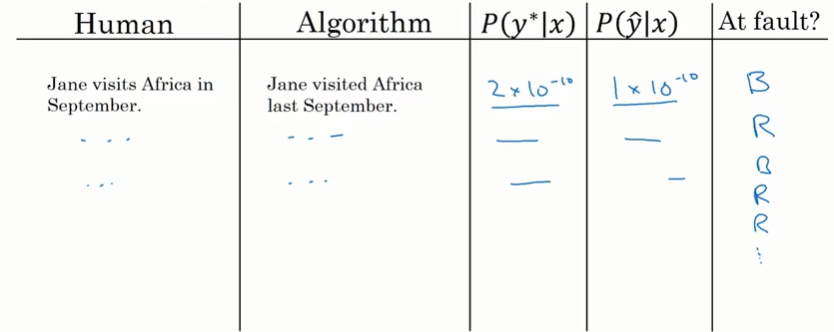 Human Algorithm P(y*|x) P(ŷ|x) At fault?
Jane visits Africa in September. Jane visited Africa last September. 2 × 10⁻¹⁰ 1 × 10⁻¹⁰ B
... ... — — R
B
... ... — — R
R
⋮